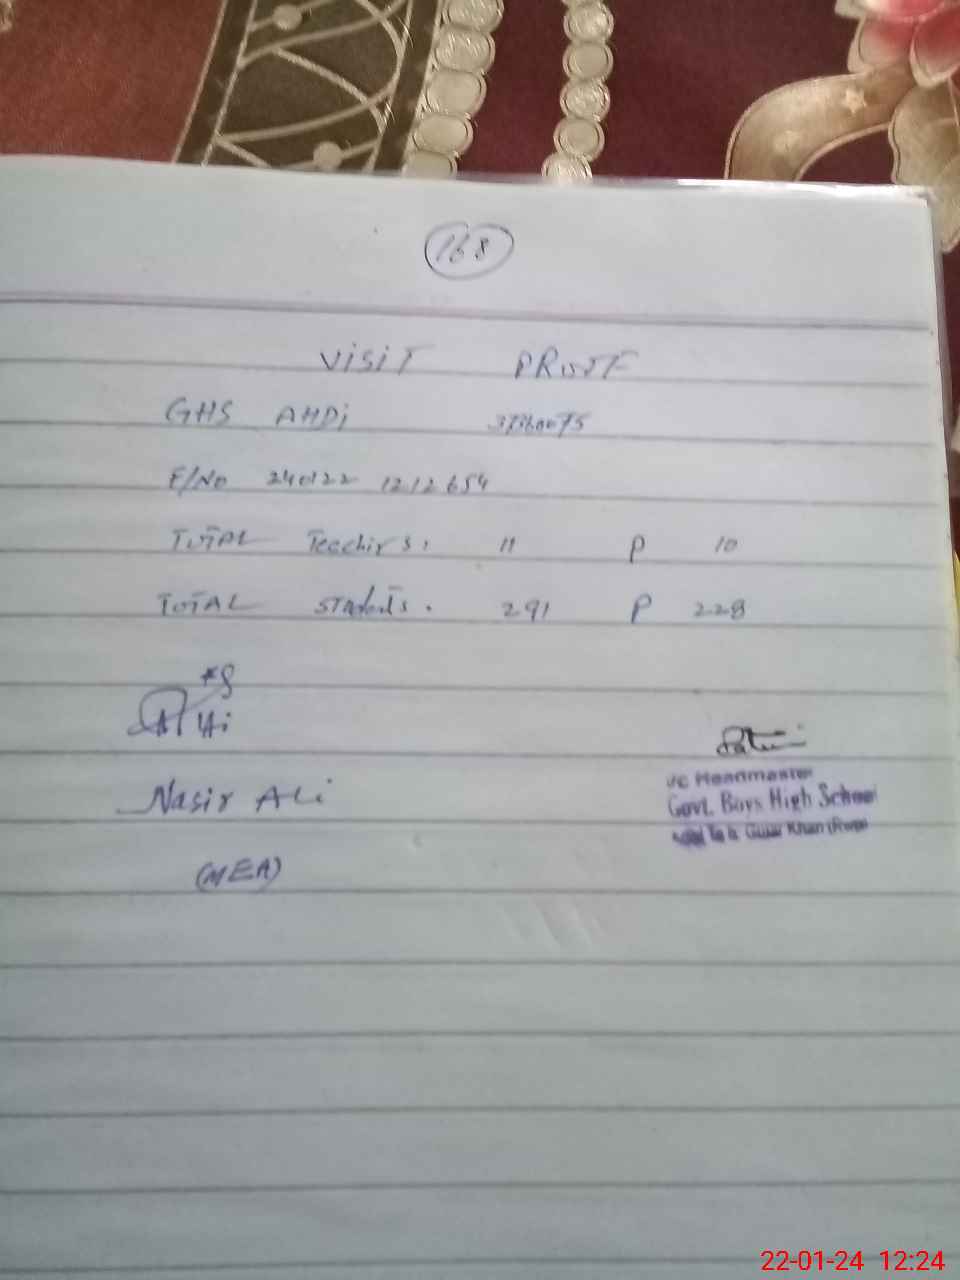 168
VISIT PROOF
GHS AHDI 37360075
F/No 240122 1212654
TOTAL Teechirs: 11 P 10
TOTAL students. 291 P 228
Nasir Ali
(MEA)
I/C Headmaster
Govt. Boys High School
Gujar Khan
22-01-24 12:24